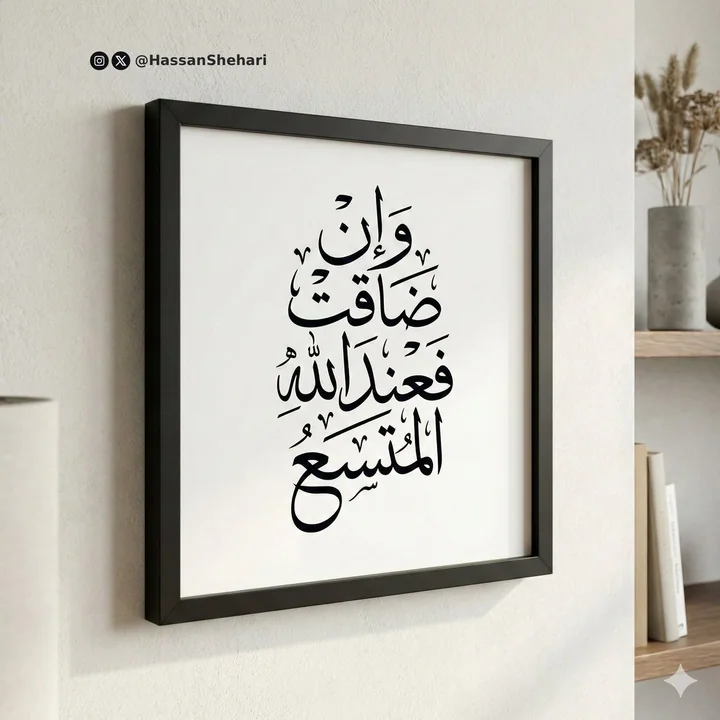 @HassanShehari
وَإِنْ
ضَاقَتْ
فَعِنْدَ اللهِ
المُتَّسَعُ